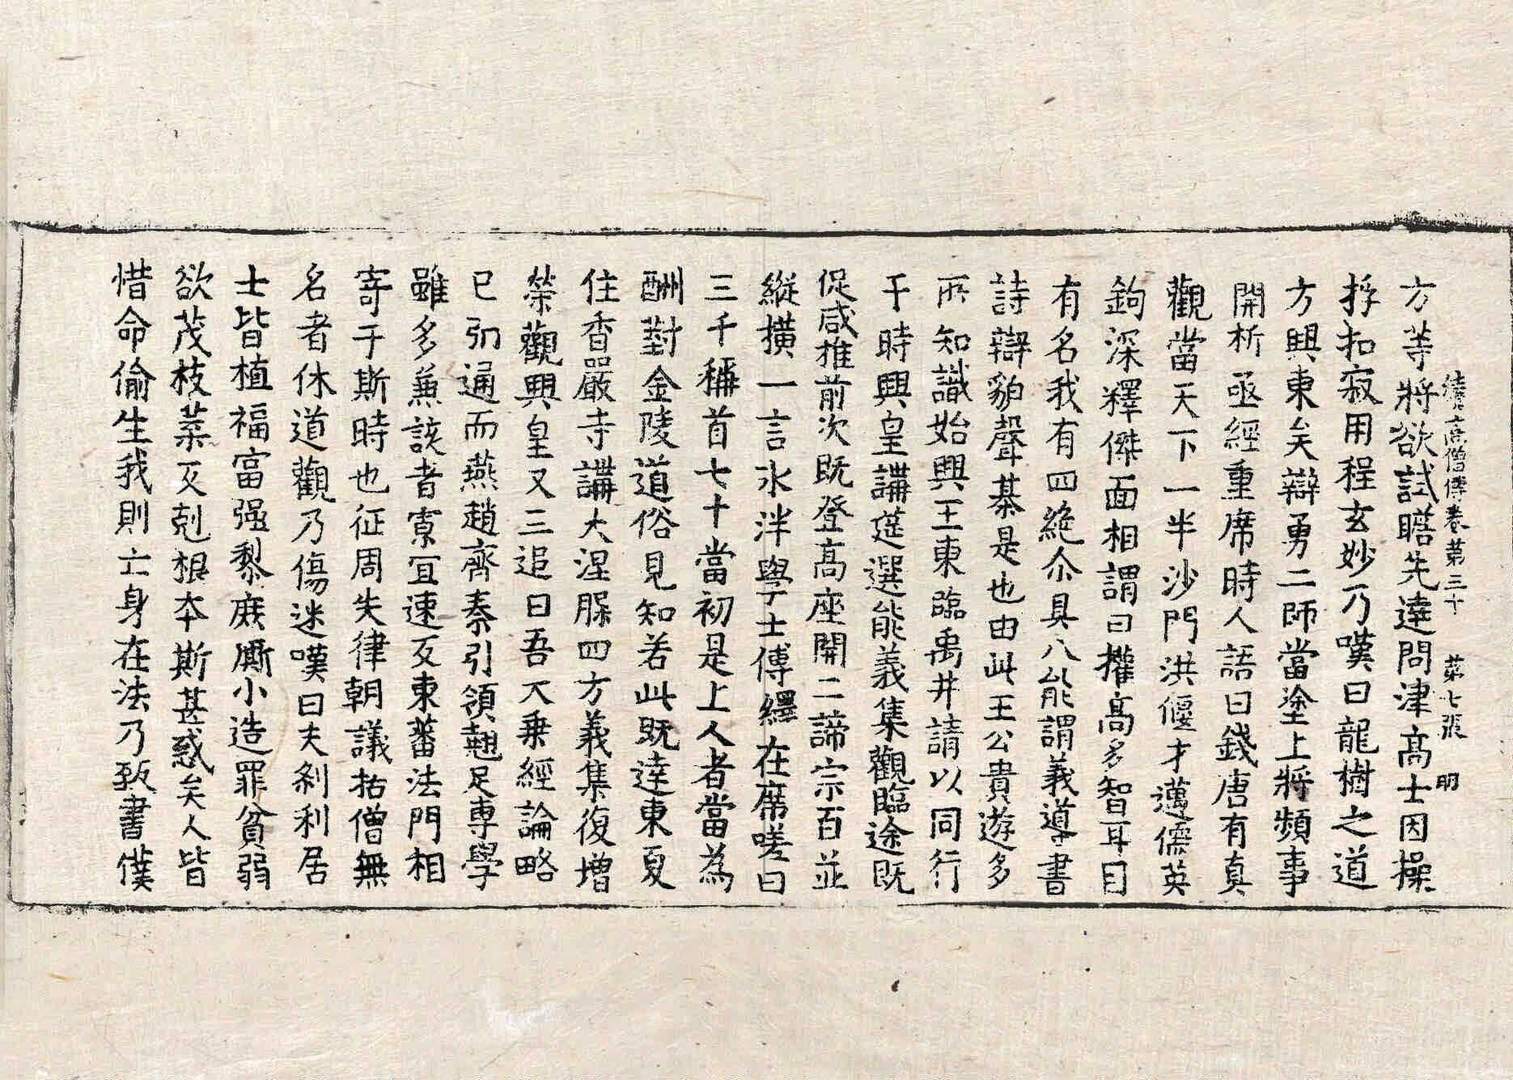 續高僧傳卷第三十 第七張 明
方等將欲試瞻先達問津高士因操
捊扣寂用程玄妙乃嘆曰龍樹之道
方興東矣辯勇二師當塗上將頻事
開析亟經重席時人語曰錢唐有真
觀當天下一半沙門洪偃才邁儒英
鉤深釋傑面相謂曰權高多智耳目
有名我有四絶尒具八能謂義導書
詩辯貌聲棊是也由此王公貴遊多
所知識始興王東臨禹井請以同行
于時興皇講莚選能義集觀臨途既
促咸推前次既登高座開二諦宗百並
縱横一言氷泮學士傅縡在席嗟曰
三千稱首七十當初是上人者當為
酬對金陵道俗見知若此既達東夏
住香嚴寺講大涅膎四方義集復增
榮觀興皇又三追曰吾大乗經論略
已弘通而燕趙齊秦引領翹足專學
雖多兼該者寡宜速反東蕃法門相
寄于斯時也征周失律朝議括僧無
名者休道觀乃傷迷嘆曰夫剎利居
士皆植福富强黎庶厮小造罪貧弱
欲茂枝葉反剋根本斯甚惑矣人皆
惜命偷生我則亡身在法乃致書僕